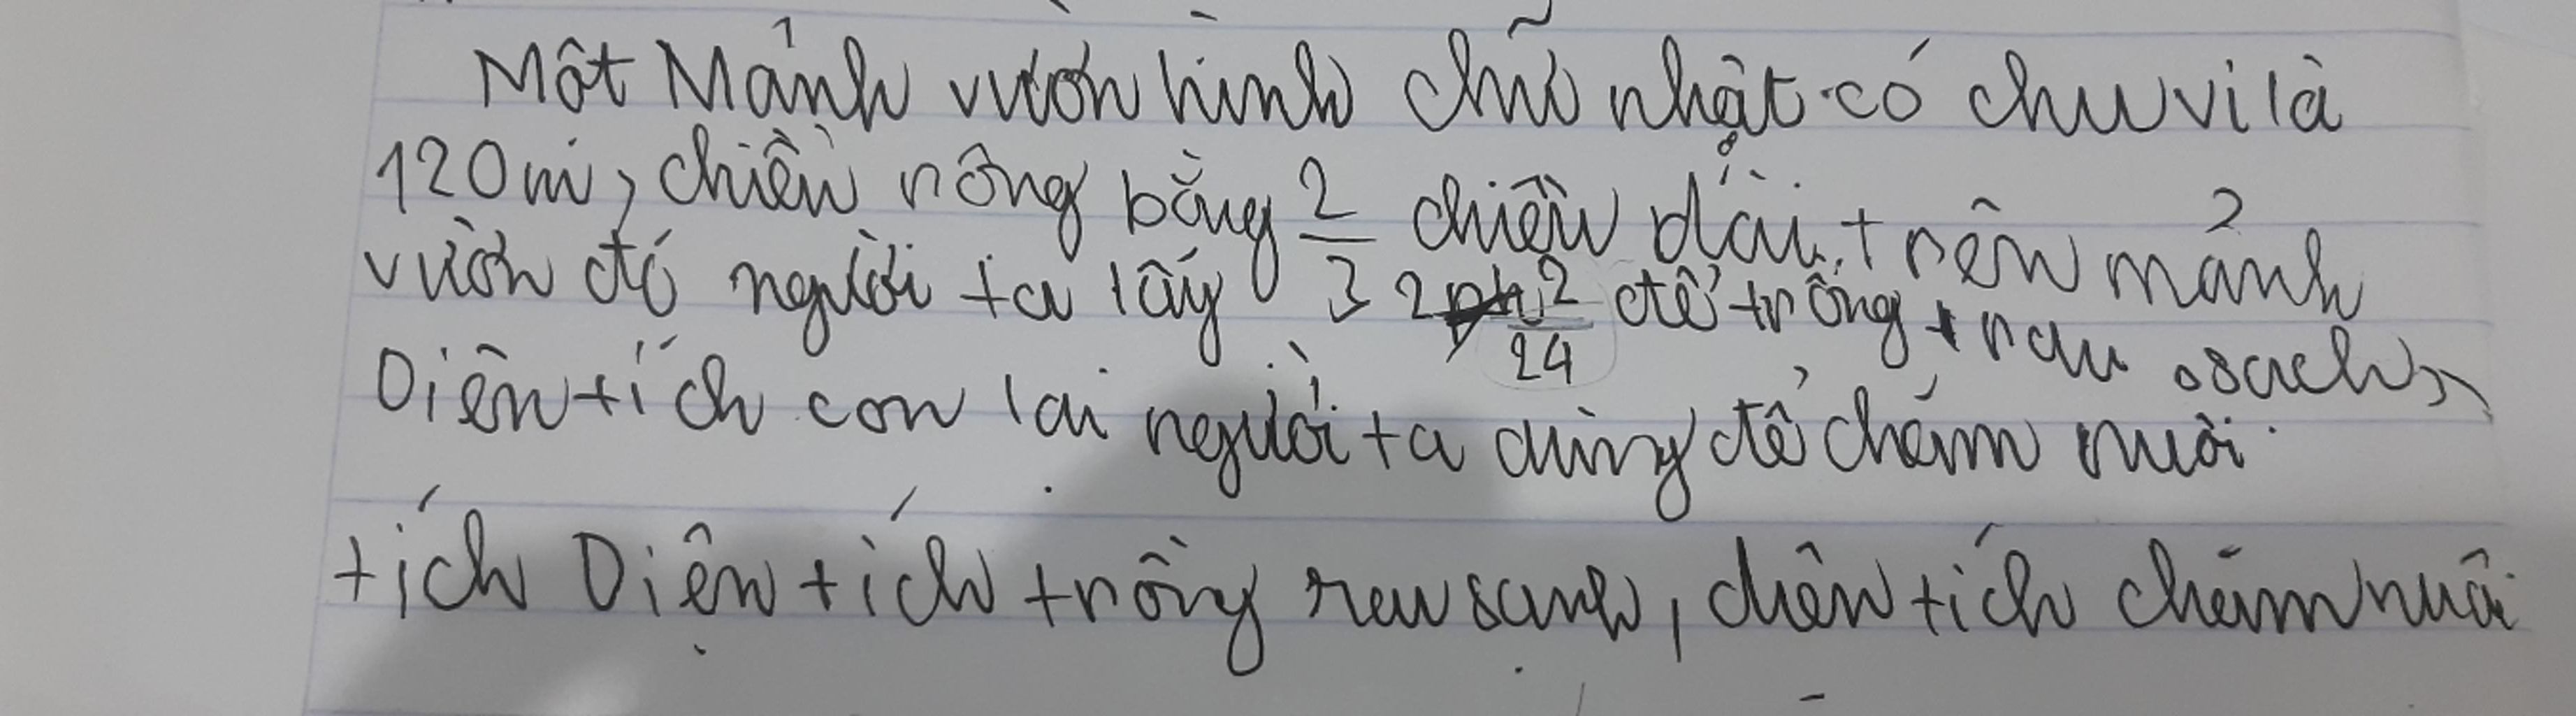 Một Mảnh vườn hình chữ nhật có chu vi là
120m, chiều rộng bằng 2/3 chiều dài, trên mảnh
vườn đó người ta lấy 2/24 để trồng rau sạch,
Diện tích con lại người ta dùng để chăm nuôi.
tích Diện tích trồng rau sạnh, diên tích chăm nuôi